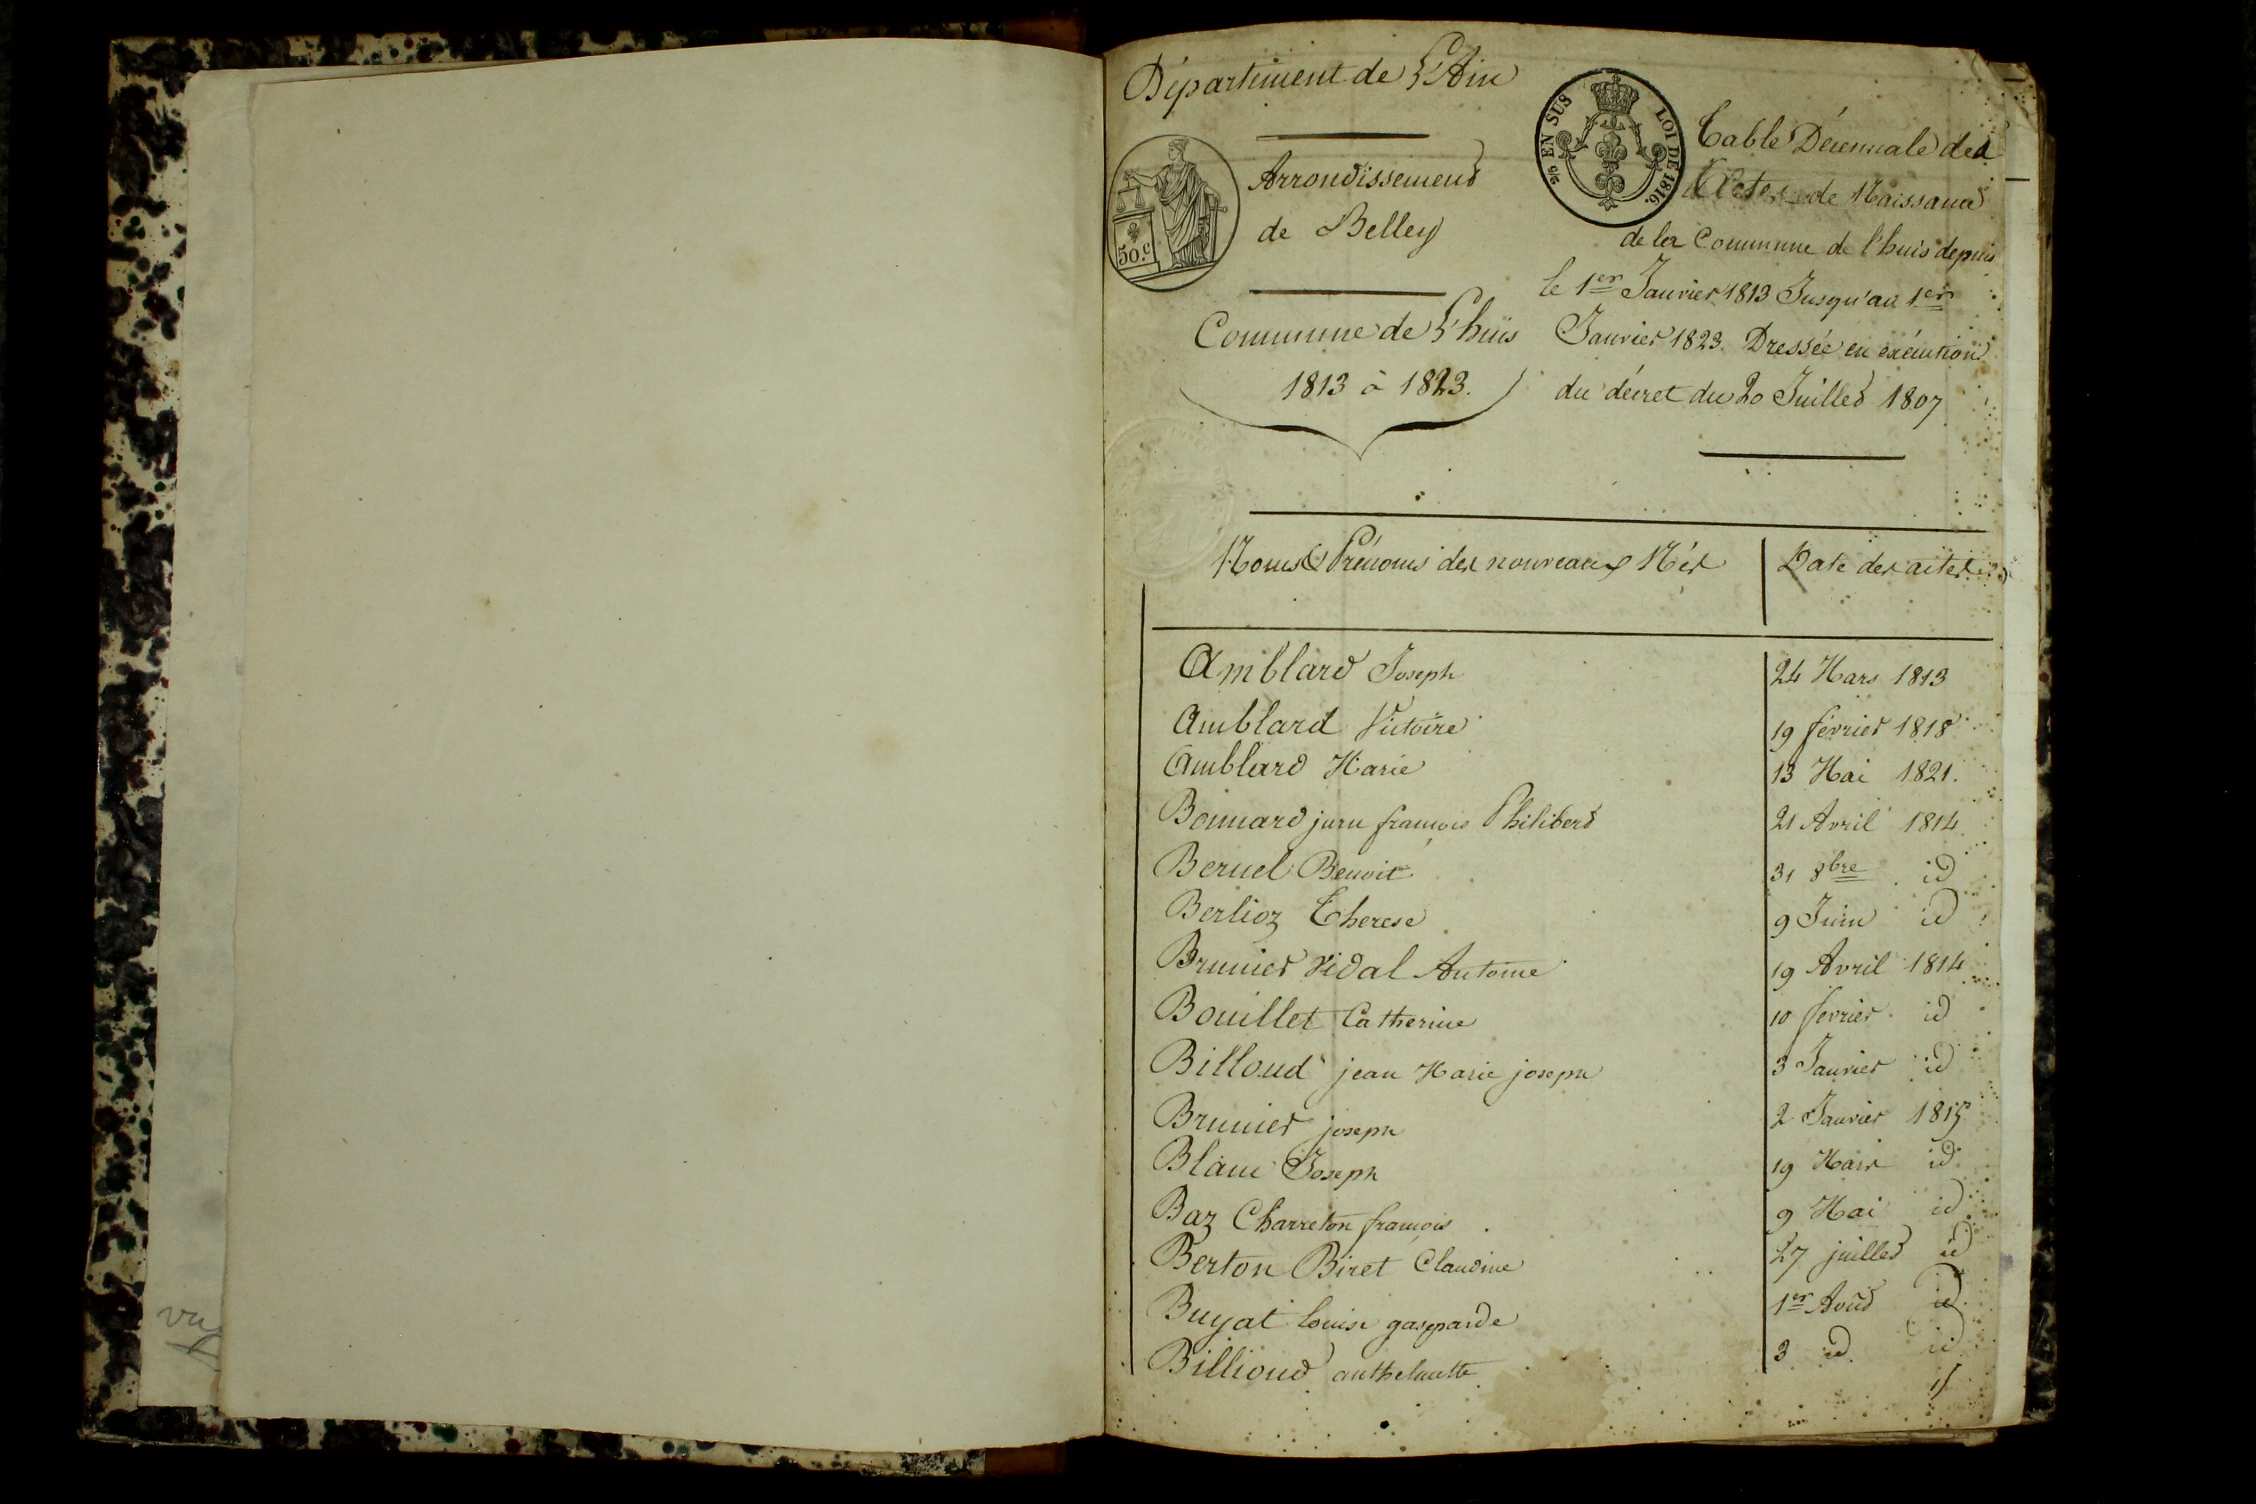 Département de L'Ain
Arrondissement
de Belley
Commune de L'huis
1813 à 1823.
50.c
EN SUS LOI DE 1816.
Table Décennale des
Actes de Naissance
de la Commune de l'huis depuis
le 1er Janvier 1813 Jusqu'au 1er
Janvier 1823. Dressée en exécution
du décret du 20 Juillet 1807
Noms & Prénoms des nouveaux Nés Date des actes
Amblard Joseph 24 Mars 1813
Amblard Victoire 19 février 1818
Amblard Marie 13 Mai 1821.
Bonnard françois Philibert 21 Avril 1814
Beruel Benoit 31 8bre id
Berlioz Therese 9 Juin id
Brunier Vidal Antoine 19 Avril 1814
Bouillet Catherine 10 fevrier id
Billoud jean Marie joseph 3 Janvier id
Brunier joseph 2 Janvier 1815
Blanc Joseph 19 Mars id
Baz Charreton françois 9 Mai id
Berton Biret Claudine 27 juillet id
Buyat Louise gasparde 1er Août id
Billioud anthelmette 3 id id
vu